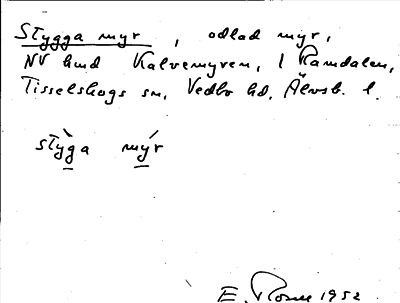 Stygga myr, odlad myr,
NV hmd Kalvemyren, 1 Ramdalen,
Tisselskogs sn, Vedbo hd, Älvsb. l.
stỳga mýr
E. Rosell 1952